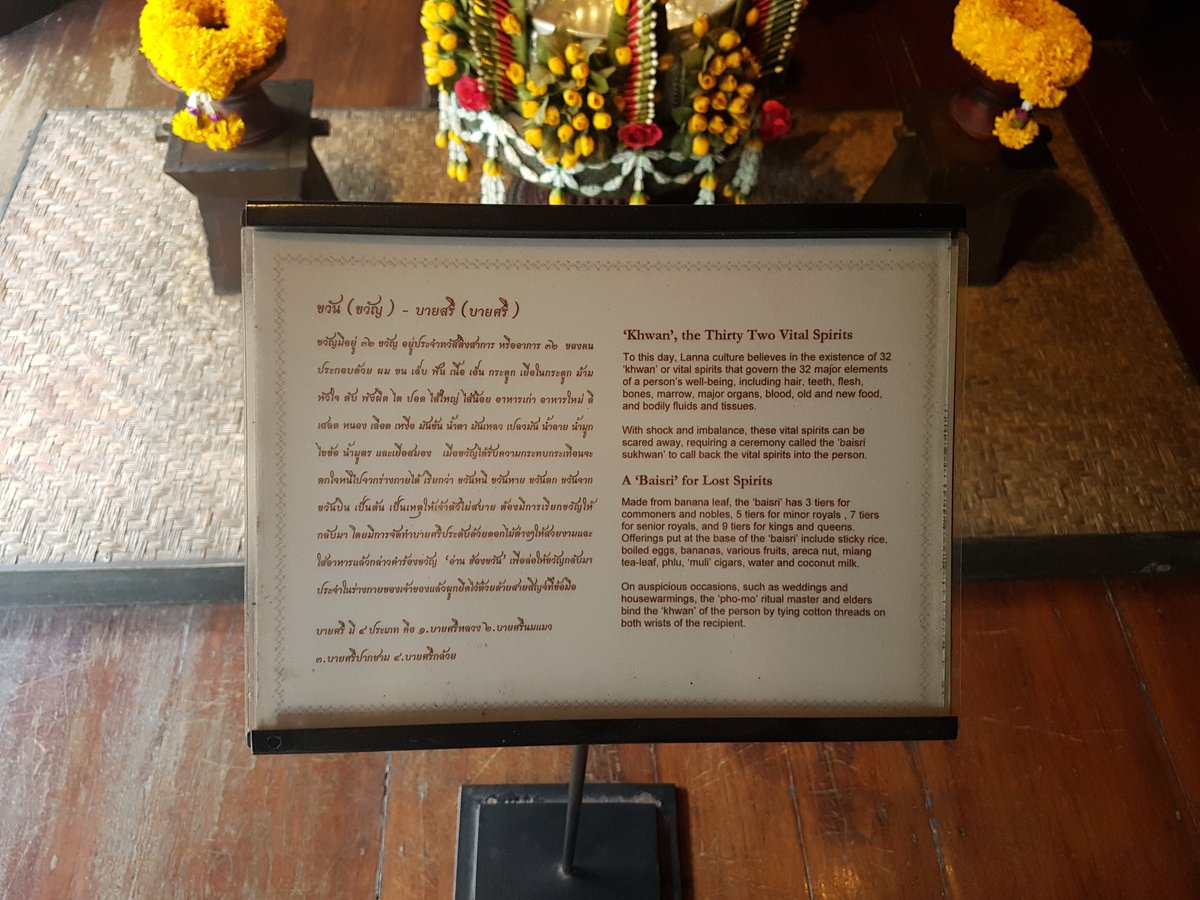 ขวัน (ขวัญ) - บายสรี (บายศรี)
ขวัญมีอยู่ ๓๒ ขวัญ อยู่ประจำทวัสติงสาการ หรืออาการ ๓๒ ของคน
ประกอบด้วย ผม ขน เล็บ ฟัน เนื้อ เอ็น กระดูก เยื่อในกระดูก ม้าม
หัวใจ ตับ พังผืด ไต ปอด ไส้ใหญ่ ไส้น้อย อาหารเก่า อาหารใหม่ ดี
เสลด หนอง เลือด เหงื่อ มันข้น น้ำตา มันเหลว เปลวมัน น้ำลาย น้ำมูก
ไขข้อ น้ำมูตร และเยื่อสมอง เมื่อขวัญได้รับความกระทบกระเทือนจะ
ตกใจหนีไปจากร่างกายได้ เรียกว่า ขวันหนี ขวันหาย ขวันตก ขวันจาก
ขวันบิน เป็นต้น เป็นเหตุให้เจ้าตัวไม่สบาย ต้องมีการเรียกขวัญให้
กลับมา โดยมีการจัดทำบายศรีประดับด้วยดอกไม้ต่างๆให้สวยงามและ
ใส่อาหารแล้วกล่าวคำร้องขวัญ 'อ่าน ฮ้องขวัน' เพื่อล่อให้ขวัญกลับมา
ประจำในร่างกายของเจ้าของแล้วผูกยึดไว้ด้วยด้ายสายสิญจ์ที่ข้อมือ
บายศรี มี ๔ ประเภท คือ ๑.บายศรีหลวง ๒.บายศรีนมแมว
๓.บายศรีปากชาม ๔.บายศรีกล้วย
'Khwan', the Thirty Two Vital Spirits
To this day, Lanna culture believes in the existence of 32
'khwan' or vital spirits that govern the 32 major elements
of a person's well-being, including hair, teeth, flesh,
bones, marrow, major organs, blood, old and new food,
and bodily fluids and tissues.
With shock and imbalance, these vital spirits can be
scared away, requiring a ceremony called the 'baisri
sukhwan' to call back the vital spirits into the person.
A 'Baisri' for Lost Spirits
Made from banana leaf, the 'baisri' has 3 tiers for
commoners and nobles, 5 tiers for minor royals , 7 tiers
for senior royals, and 9 tiers for kings and queens.
Offerings put at the base of the 'baisri' include sticky rice,
boiled eggs, bananas, various fruits, areca nut, miang
tea-leaf, phlu, 'muli' cigars, water and coconut milk.
On auspicious occasions, such as weddings and
housewarmings, the 'pho-mo' ritual master and elders
bind the 'khwan' of the person by tying cotton threads on
both wrists of the recipient.